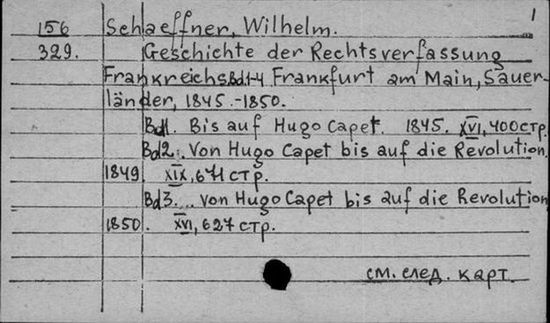 1
156 Schaeffner, Wilhelm.
329. Geschichte der Rechtsverfassung
Frankreichs Bd1-4 Frankfurt am Main, Sauer-
länder, 1845.-1850.
Bd1. Bis auf Hugo Capet. 1845. XVI, 400 стр.
Bd2. Von Hugo Capet bis auf die Revolution
1849. XIX, 671 стр.
Bd3.... von Hugo Capet bis auf die Revolution
1850. XVI, 627 стр.
см. след. карт.